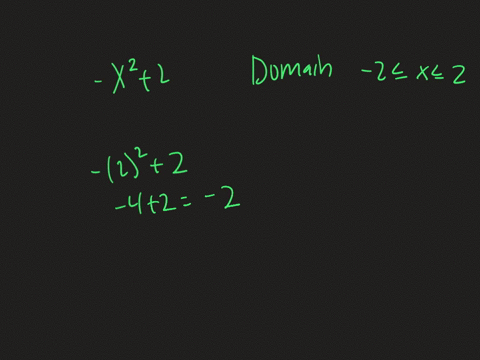 -x²+2 Domain -2 ≤ x ≤ 2
-(2)²+2
-4+2=-2